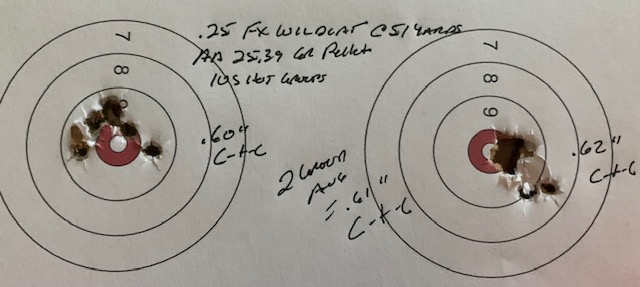 .25 FX WILDCAT @ 51 YARDS
AA 25.39 GR Pellet
10 SHOT GROUPS
7
8
9
.60"
C-t-C
2 GROUP
AVG
= .61"
C-t-C
7
8
9
.62"
C-t-C